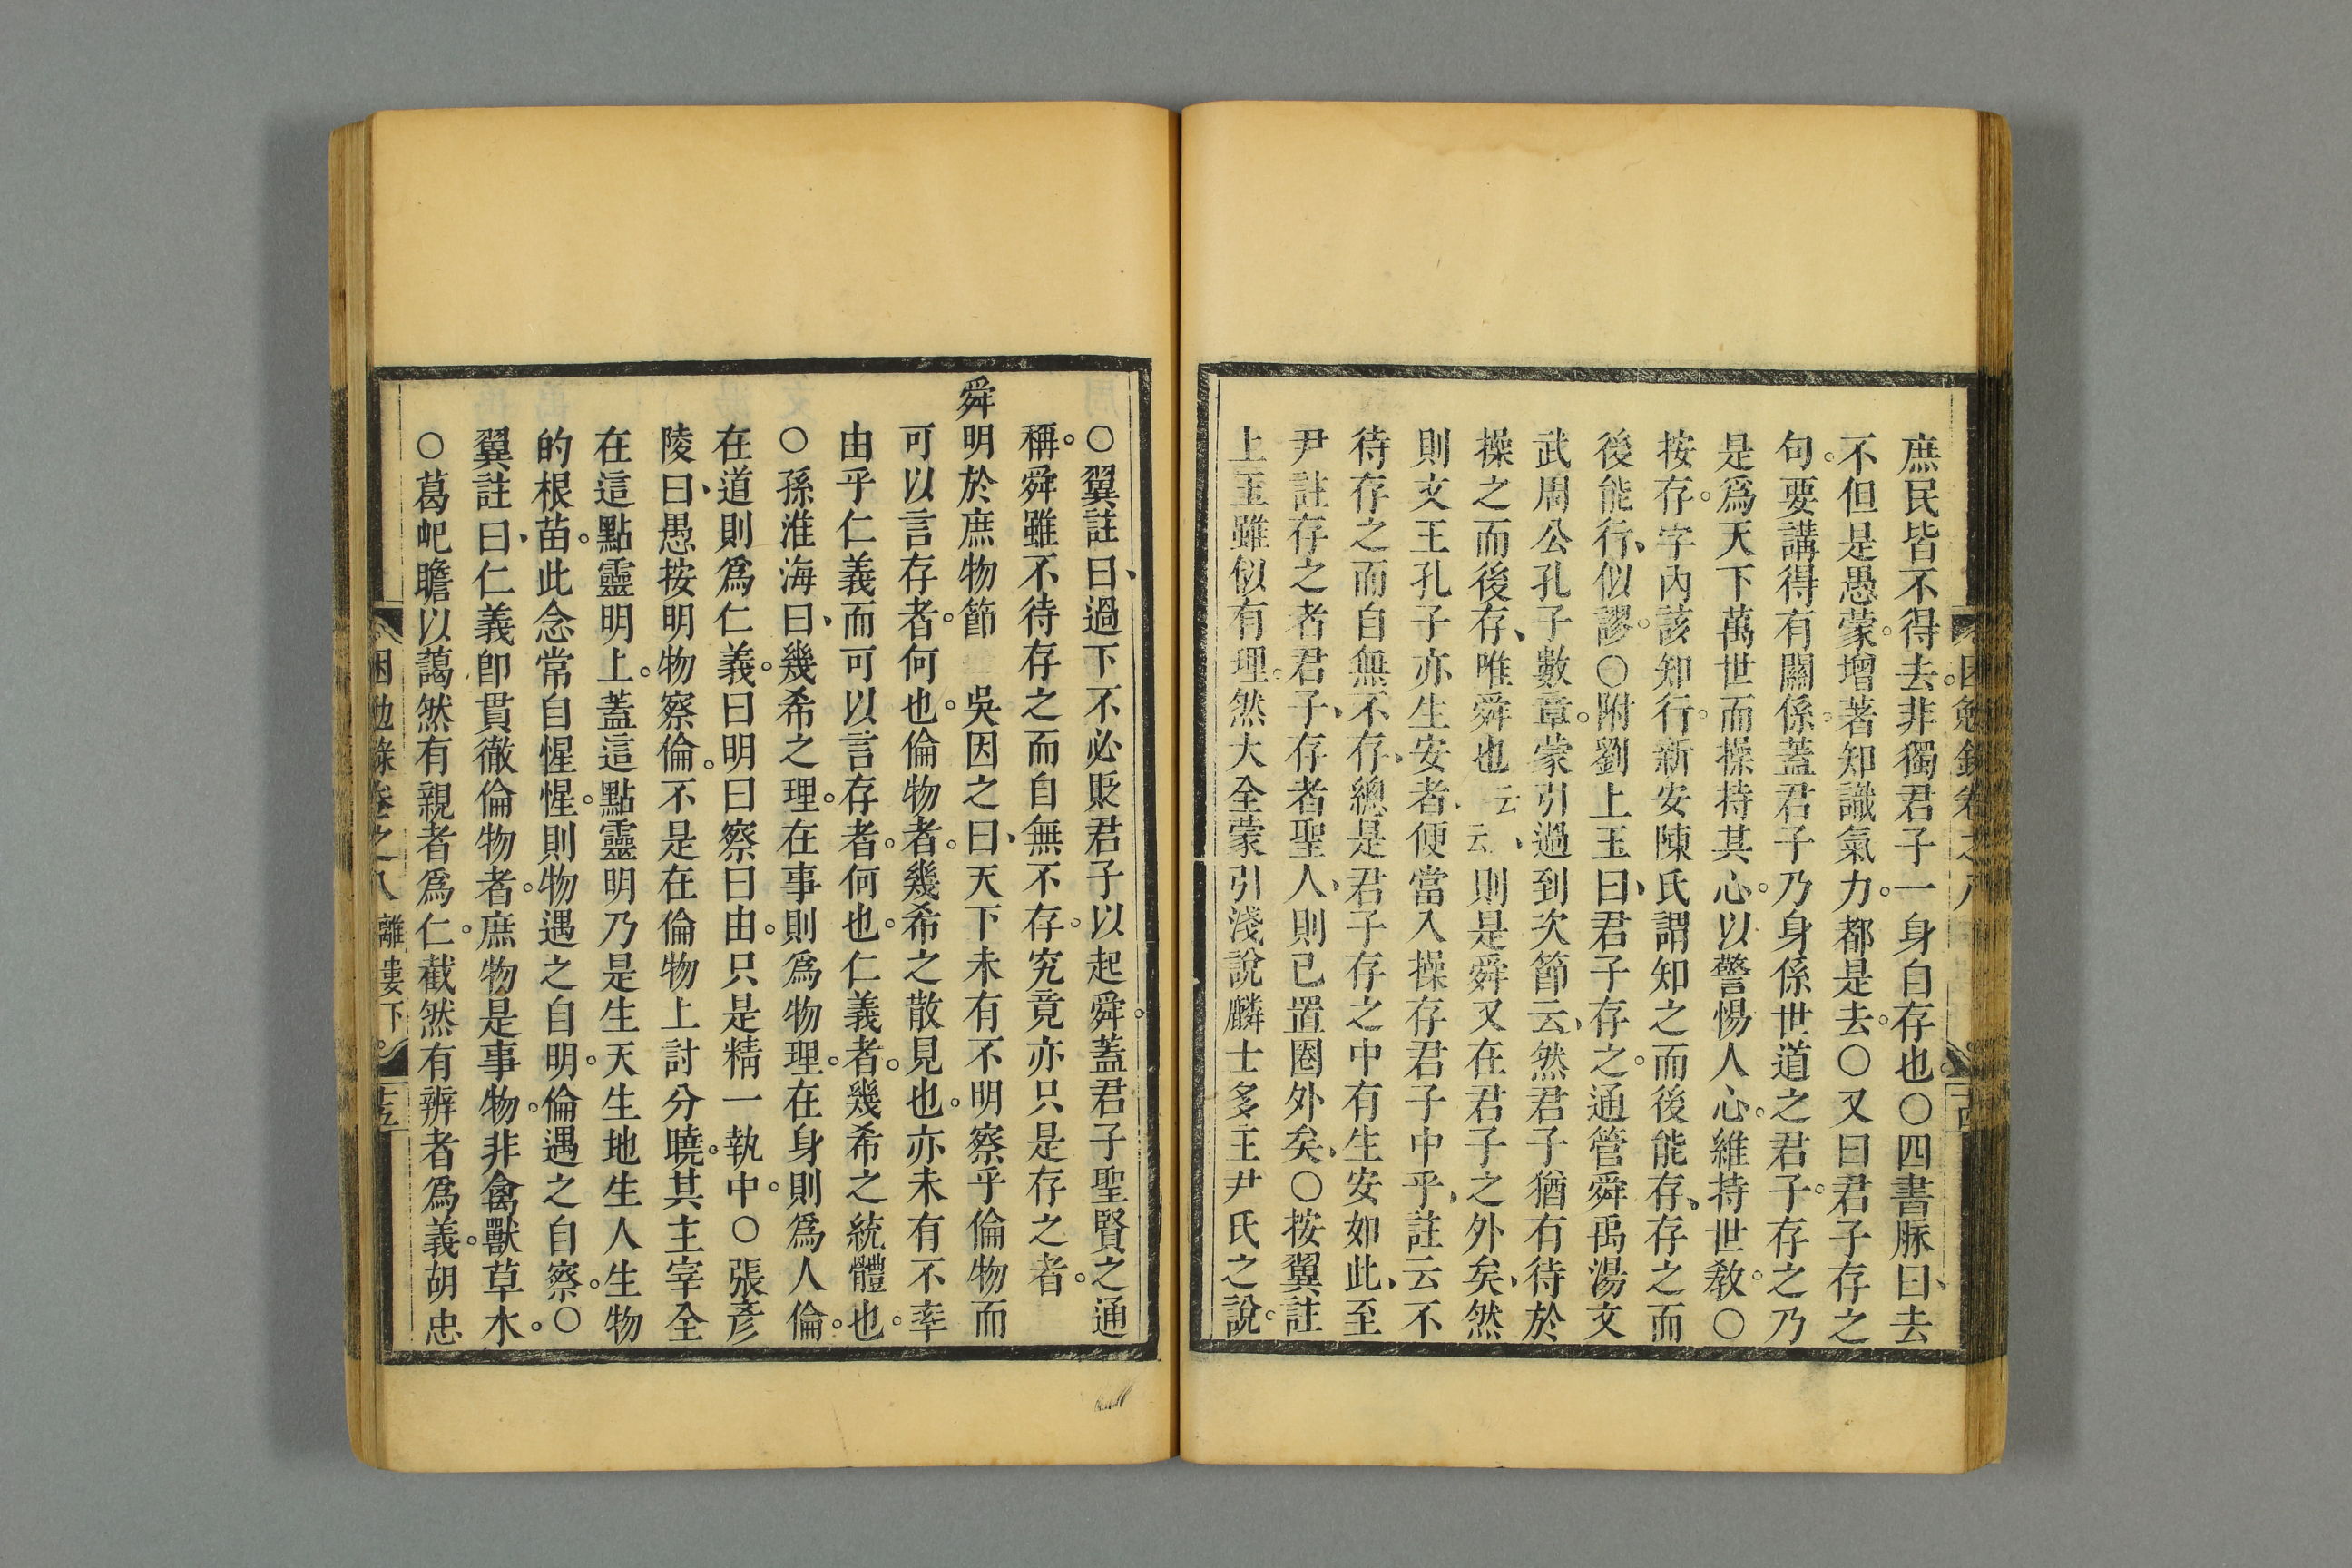 庶民皆不得去。非獨君子一身自存也。○四書脉曰、去
不但是愚蒙。增著知識氣力。都是去。○又曰君子存之
句。要講得有關係。蓋君子乃身係世道之君子。存之乃
是爲天下萬世而操持其心。以警惕人心。維持世敎。○
按存。字內該知行。新安陳氏謂知之而後能存、存之而
後能行、似謬。○附劉上玉曰、君子存之。通管舜禹湯文
武周公孔子數章。蒙引過到次節云、然君子猶有待於
操之而後存、唯舜也、云云、則是舜又在君子之外矣、然
則文王孔子亦生安者、便當入操存君子中乎、註云不
待存之而自無不存、總是君子存之中有生安如此、至
尹註存之者君子、存者聖人、則已置圈外矣、○按翼註
上玉雖似有理。然大全蒙引淺說麟士多主尹氏之說。
困勉錄卷之八
十四
○翼註曰、過下不必貶君子以起舜。蓋君子聖賢之通
稱。舜雖不待存之而自無不存。究竟亦只是存之者。
舜明於庶物節 吳因之曰、天下未有不明察乎倫物而
可以言存者。何也。倫物者。幾希之散見也。亦未有不率
由乎仁義而可以言存者。何也。仁義者。幾希之統體也。
○孫淮海曰、幾希之理。在事則爲物理。在身則爲人倫。
在道則爲仁義。曰明曰察曰由。只是精一執中。○張彥
陵曰、愚按明物察倫。不是在倫物上討分曉。其主宰全
在這點靈明上。蓋這點靈明乃是生天生地生人生物
的根苗。此念常自惺惺。則物遇之自明。倫遇之自察。○
翼註曰、仁義卽貫徹倫物者。庶物是事物。非禽獸草木。
○葛屺瞻以藹然有親者爲仁。截然有辨者爲義。胡忠
困勉錄卷之八 離婁下
十五